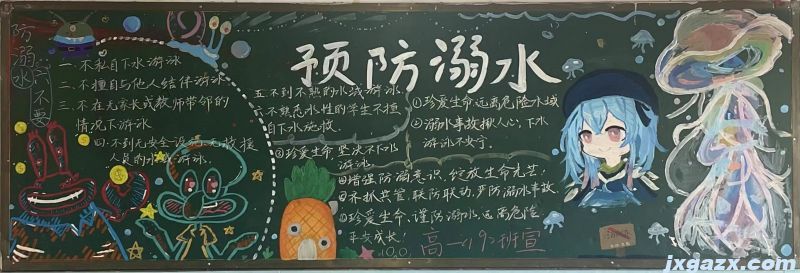 预防溺水
防溺水六不要
一、不私自下水游泳
二、不擅自与他人结伴游泳
三、不在无家长或教师带领的
情况下游泳
四、不到无安全设施、无救援
人员的水域游泳
五、不到不熟的水域游泳
六、不熟悉水性的学生不擅
自下水施救
①珍爱生命,远离危险水域
②溺水事故揪人心,下水
游泳不安宁
③珍爱生命,坚决不下水
游泳
增强防溺意识,绽放生命光芒!
齐抓共管,联防联动,严防溺水事故
珍爱生命,谨防溺水,远离危险
平安成长!
高一(9)班宣
jxgazx.com